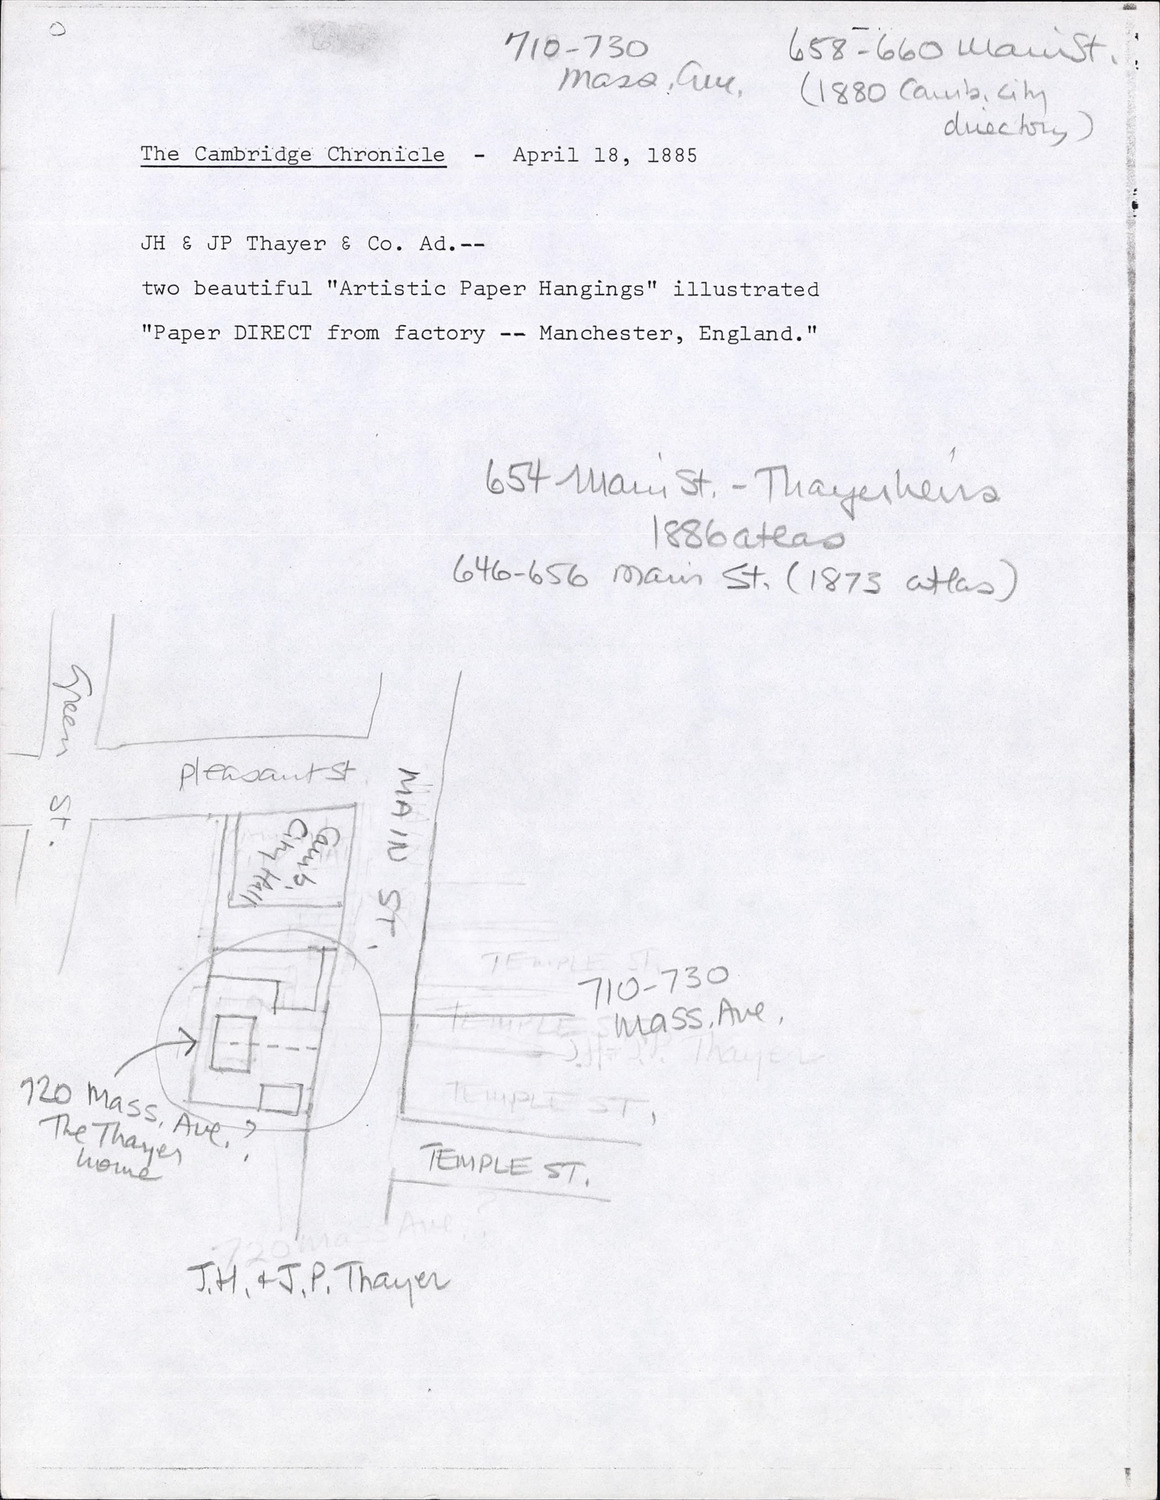 710-730
Mass. Ave.
658-660 Main St.
(1880 Camb. City
directory)
The Cambridge Chronicle - April 18, 1885
JH & JP Thayer & Co. Ad.--
two beautiful "Artistic Paper Hangings" illustrated
"Paper DIRECT from factory -- Manchester, England."
654 Main St. - Thayer heirs
1886 atlas
646-656 Main St. (1873 atlas)
Green St.
Pleasant St.
MAIN ST.
Camb.
City Hall
TEMPLE ST.
710-730
Mass. Ave.
TEMPLE ST.
J.H. & J.P. Thayer
TEMPLE ST.
720 Mass. Ave.?
The Thayer
home
TEMPLE ST.
720 Mass Ave.?
J.H. & J.P. Thayer